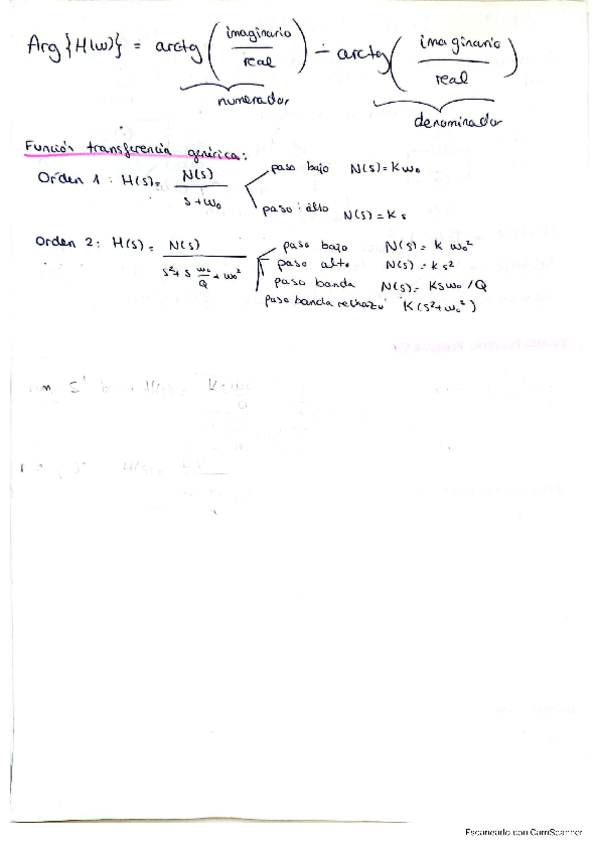 Arg{H(ω)} = arctg(imaginario/real) − arctg(imaginario/real)
numerador
denominador
Función transferencia genérica:
Orden 1: H(s)= N(s)/(s+ω₀)
paso bajo N(s)=Kω₀
paso alto N(s)=Ks
Orden 2: H(s)= N(s)/(s²+s ω₀/Q+ω₀²)
paso bajo N(s)=K ω₀²
paso alto N(s)=Ks²
paso banda N(s)=Ksω₀/Q
paso banda rechazo K(s²+ω₀²)
Escaneado con CamScanner